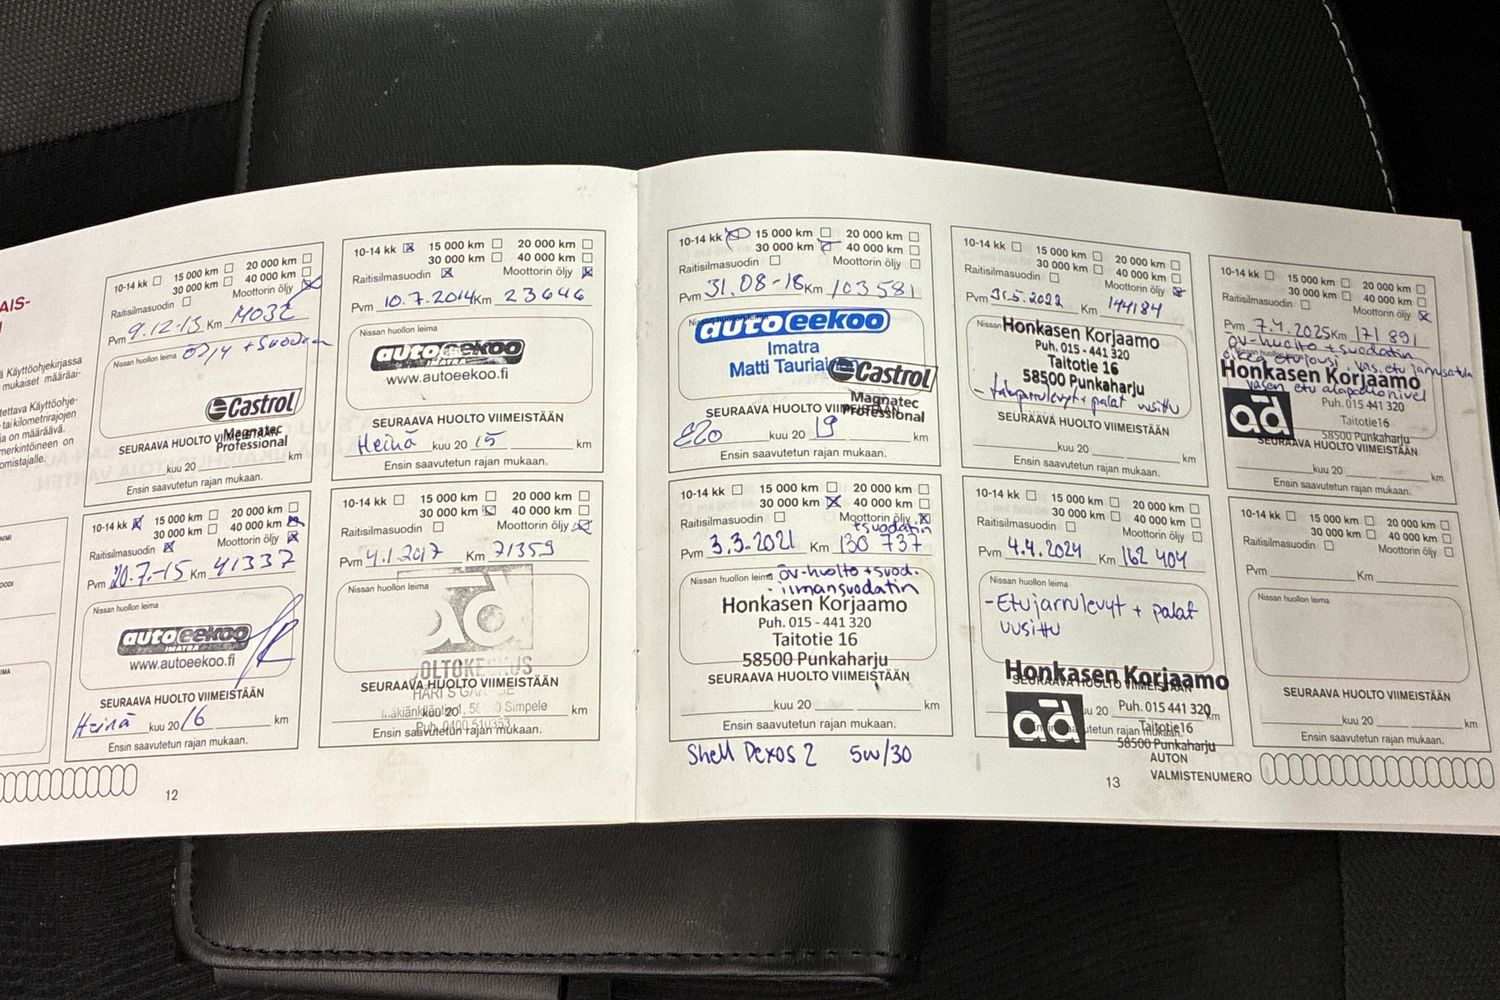 AIS-
ä Käyttöohjekirjassa
mukaiset määräai-
tettava Käyttöohje-
tai kilometrirajojen
a on määräävä.
merkintöineen on
omistajalle.
10-14 kk 15 000 km 20 000 km
30 000 km 40 000 km
Raitisilmasuodin Moottorin öljy
Pvm 9.12-13 Km
Nissan huollon leima
Castrol
Magnatec
Professional
SEURAAVA HUOLTO VIIMEISTÄÄN
kuu 20 km
Ensin saavutetun rajan mukaan.
10-14 kk 15 000 km 20 000 km
30 000 km 40 000 km
Raitisilmasuodin Moottorin öljy
Pvm 10.7.2014 Km 23646
Nissan huollon leima
autoeekoo
IMATRA
www.autoeekoo.fi
SEURAAVA HUOLTO VIIMEISTÄÄN
Heinä kuu 20 15 km
Ensin saavutetun rajan mukaan.
10-14 kk 15 000 km 20 000 km
30 000 km 40 000 km
Raitisilmasuodin Moottorin öljy
Pvm 20.7.-15 Km 41337
Nissan huollon leima
autoeekoo
IMATRA
www.autoeekoo.fi
SEURAAVA HUOLTO VIIMEISTÄÄN
Heinä kuu 20 16 km
Ensin saavutetun rajan mukaan.
10-14 kk 15 000 km 20 000 km
30 000 km 40 000 km
Raitisilmasuodin Moottorin öljy
Pvm 4.1.2017 Km 71359
Nissan huollon leima
ad
SEURAAVA HUOLTO VIIMEISTÄÄN
Simpele
kuu 20 km
Ensin saavutetun rajan mukaan.
12
10-14 kk 15 000 km 20 000 km
30 000 km 40 000 km
Raitisilmasuodin Moottorin öljy
Pvm 31.08-18 Km 103581
autoeekoo
Imatra
Matti
Castrol
Magnatec
Professional
SEURAAVA HUOLTO VIIMEISTÄÄN
Elo kuu 20 19 km
Ensin saavutetun rajan mukaan.
10-14 kk 15 000 km 20 000 km
30 000 km 40 000 km
Raitisilmasuodin Moottorin öljy
Pvm 31.5.2022 Km 144184
Honkasen Korjaamo
Puh. 015 - 441 320
Taitotie 16
58500 Punkaharju
- takajarrulevyt + palat uusittu
SEURAAVA HUOLTO VIIMEISTÄÄN
kuu 20 km
Ensin saavutetun rajan mukaan.
10-14 kk 15 000 km 20 000 km
30 000 km 40 000 km
Raitisilmasuodin Moottorin öljy
Pvm 7.4.2025 Km 171 891
öv-huolto + suodatin
oikea etujousi, vas. etu jarrusatula
Honkasen Korjaamo
vasen etu alapallonivel
ad
Puh. 015 441 320
Taitotie16
58500 Punkaharju
SEURAAVA HUOLTO VIIMEISTÄÄN
kuu 20 km
Ensin saavutetun rajan mukaan.
10-14 kk 15 000 km 20 000 km
30 000 km 40 000 km
Raitisilmasuodin Moottorin öljy
+suodatin
Pvm 3.3.2021 Km 130 737
Nissan huollon leima
öv-huolto + suod.
- ilmansuodatin
Honkasen Korjaamo
Puh. 015 - 441 320
Taitotie 16
58500 Punkaharju
SEURAAVA HUOLTO VIIMEISTÄÄN
kuu 20 km
Ensin saavutetun rajan mukaan.
Shell Dexos 2 5w/30
10-14 kk 15 000 km 20 000 km
30 000 km 40 000 km
Raitisilmasuodin Moottorin öljy
Pvm 4.4.2024 Km 162 404
Nissan huollon leima
- Etujarrulevyt + palat
uusittu
Honkasen Korjaamo
SEURAAVA HUOLTO VIIMEISTÄÄN
ad
Puh. 015 441 320
Taitotie16
58500 Punkaharju
10-14 kk 15 000 km 20 000 km
30 000 km 40 000 km
Raitisilmasuodin Moottorin öljy
Pvm Km
Nissan huollon leima
SEURAAVA HUOLTO VIIMEISTÄÄN
kuu 20 km
Ensin saavutetun rajan mukaan.
13
AUTON
VALMISTENUMERO